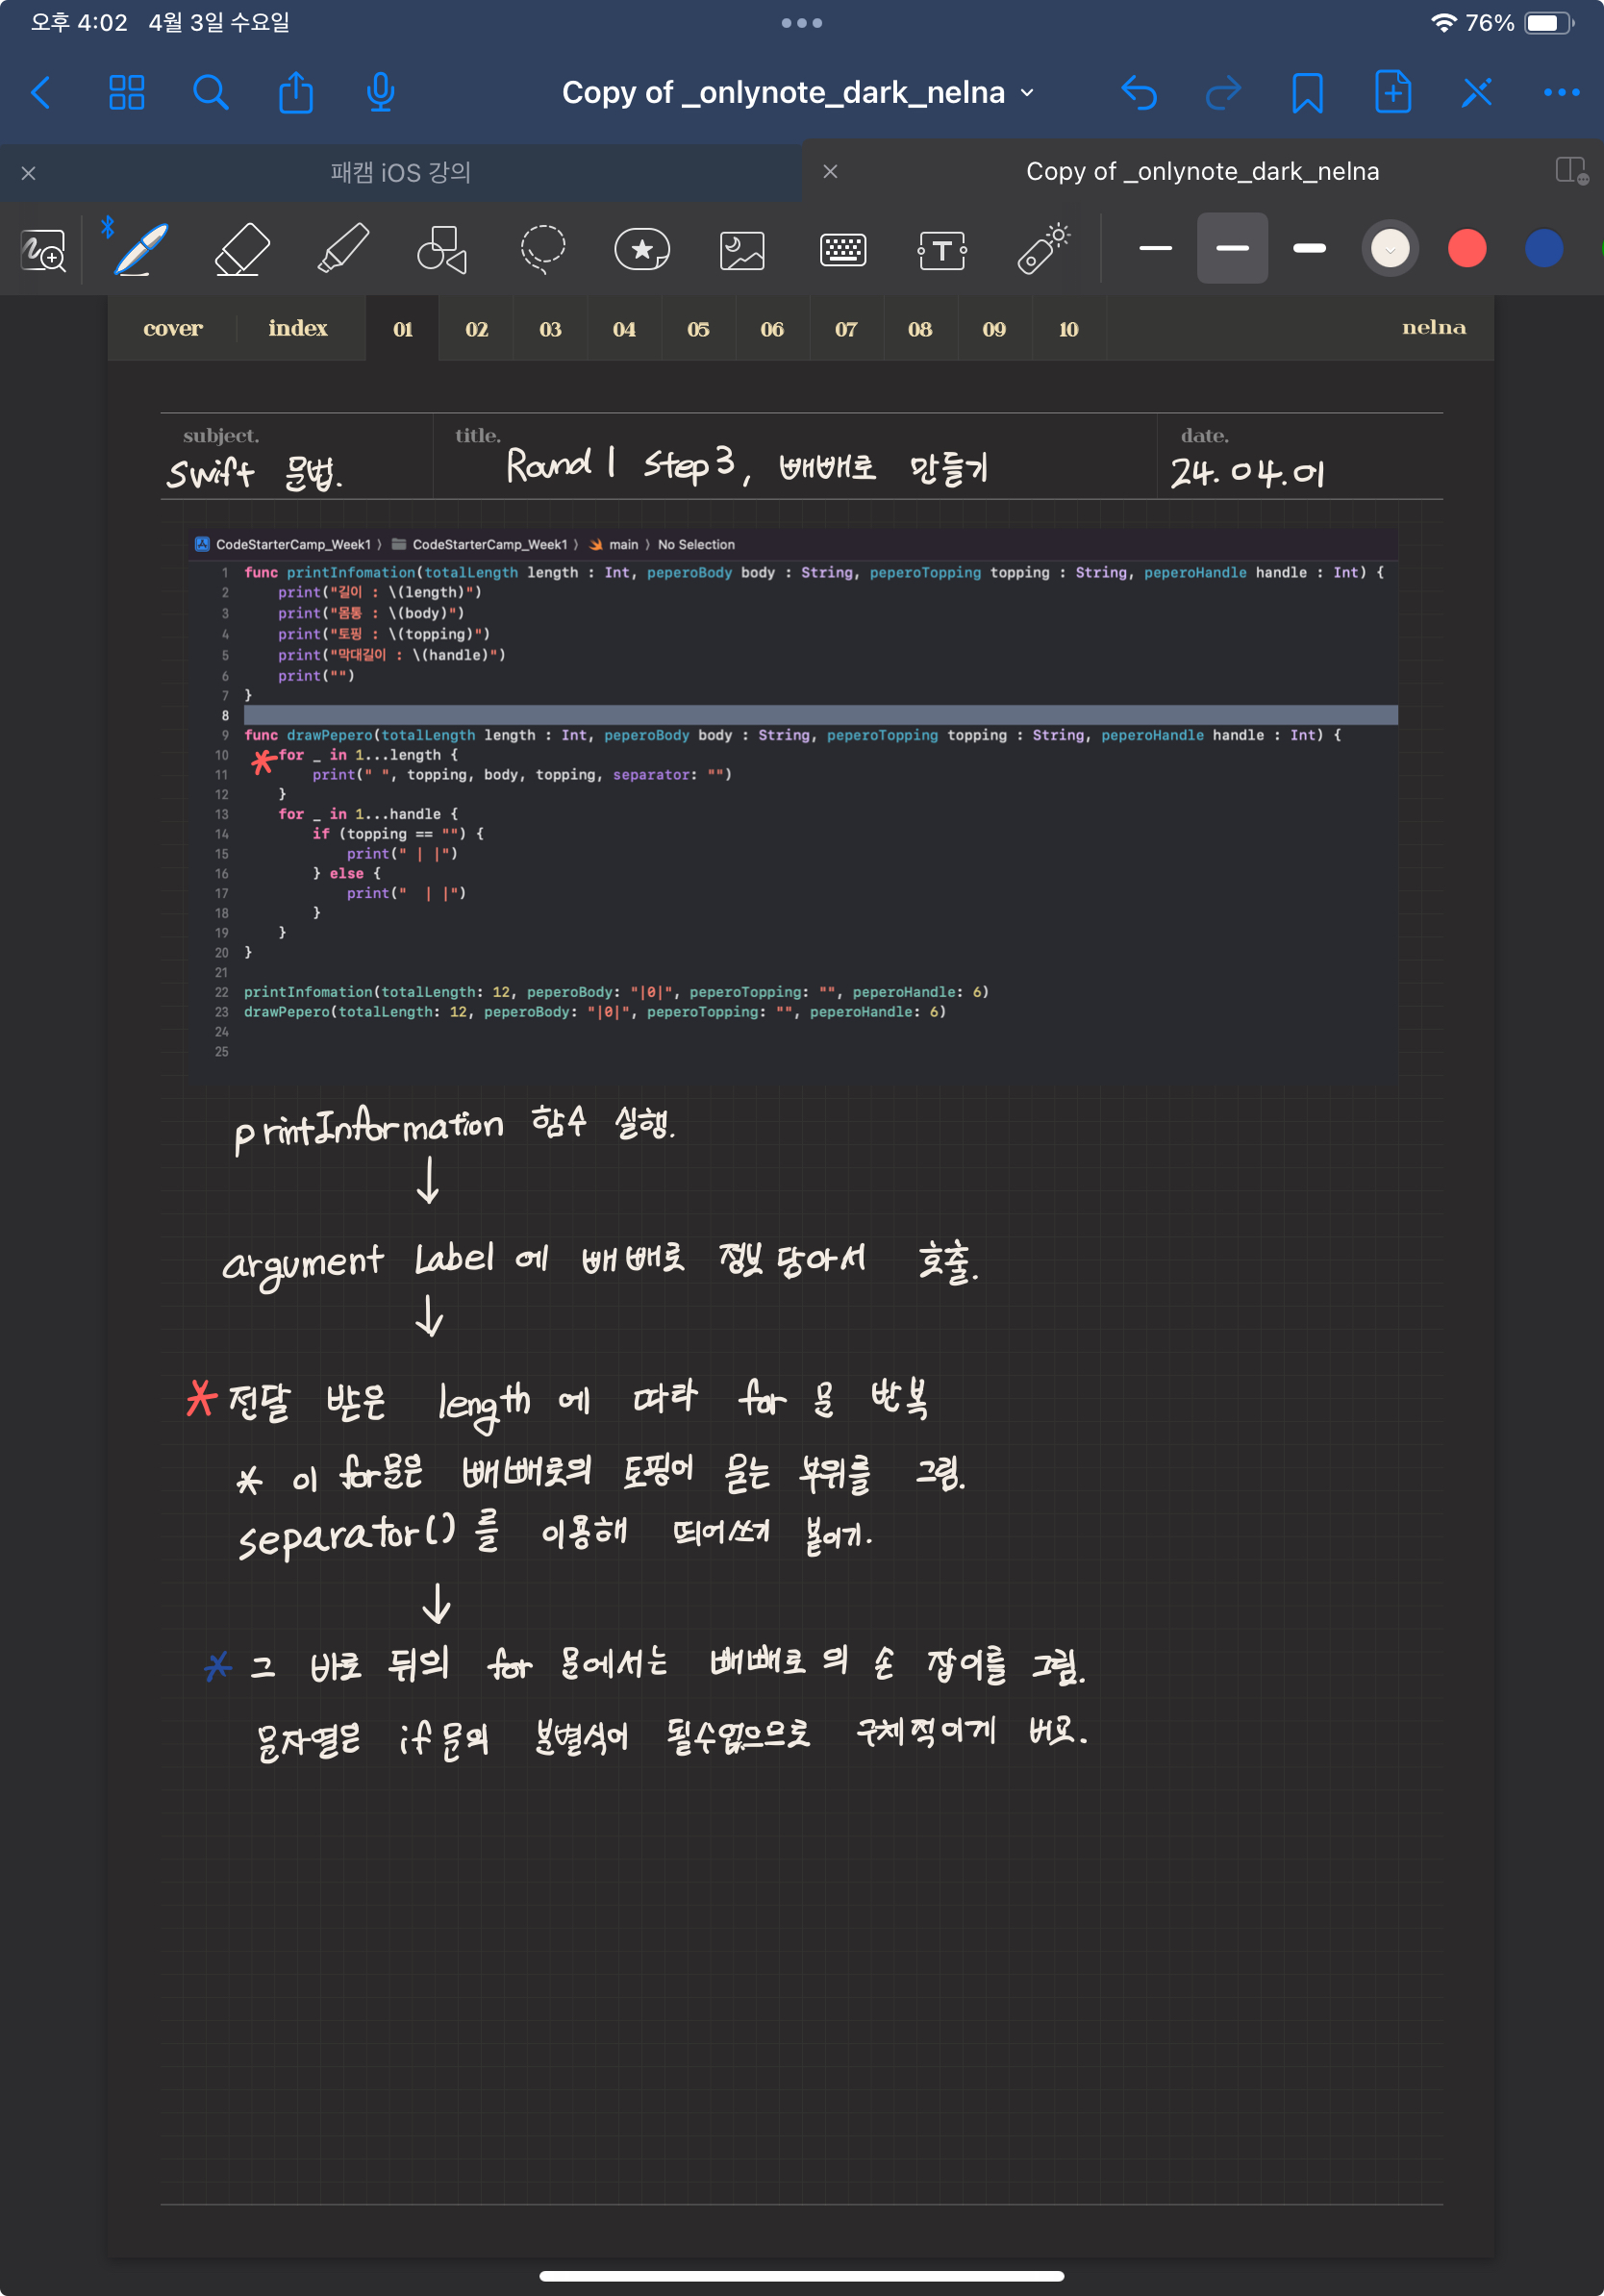 오후 4:02 4월 3일 수요일
76%
Copy of _onlynote_dark_nelna
패캠 iOS 강의
Copy of _onlynote_dark_nelna
cover index 01 02 03 04 05 06 07 08 09 10 nelna
subject. title. date.
Swift 문법. Round 1 Step 3, 빼빼로 만들기 24.04.01
CodeStarterCamp_Week1 〉 CodeStarterCamp_Week1 〉 main 〉 No Selection
1 func printInfomation(totalLength length : Int, peperoBody body : String, peperoTopping topping : String, peperoHandle handle : Int) {
2 print("길이 : \(length)")
3 print("몸통 : \(body)")
4 print("토핑 : \(topping)")
5 print("막대길이 : \(handle)")
6 print("")
7 }
8
9 func drawPepero(totalLength length : Int, peperoBody body : String, peperoTopping topping : String, peperoHandle handle : Int) {
10 * for _ in 1...length {
11 print(" ", topping, body, topping, separator: "")
12 }
13 for _ in 1...handle {
14 if (topping == "") {
15 print(" | |")
16 } else {
17 print("  | |")
18 }
19 }
20 }
21
22 printInfomation(totalLength: 12, peperoBody: "|0|", peperoTopping: "", peperoHandle: 6)
23 drawPepero(totalLength: 12, peperoBody: "|0|", peperoTopping: "", peperoHandle: 6)
24
25
printInformation 함수 실행.
↓
argument Label 에 빼빼로 정보 담아서 호출.
↓
* 전달 받은 length 에 따라 for 문 반복
* 이 for문은 빼빼로의 토핑이 묻는 부위를 그림.
separator() 를 이용해 띄어쓰기 붙이기.
↓
* 그 바로 뒤의 for 문에서는 빼빼로의 손 잡이를 그림.
문자열은 if문의 분별식이 될수없으므로 구체적이게 비교.